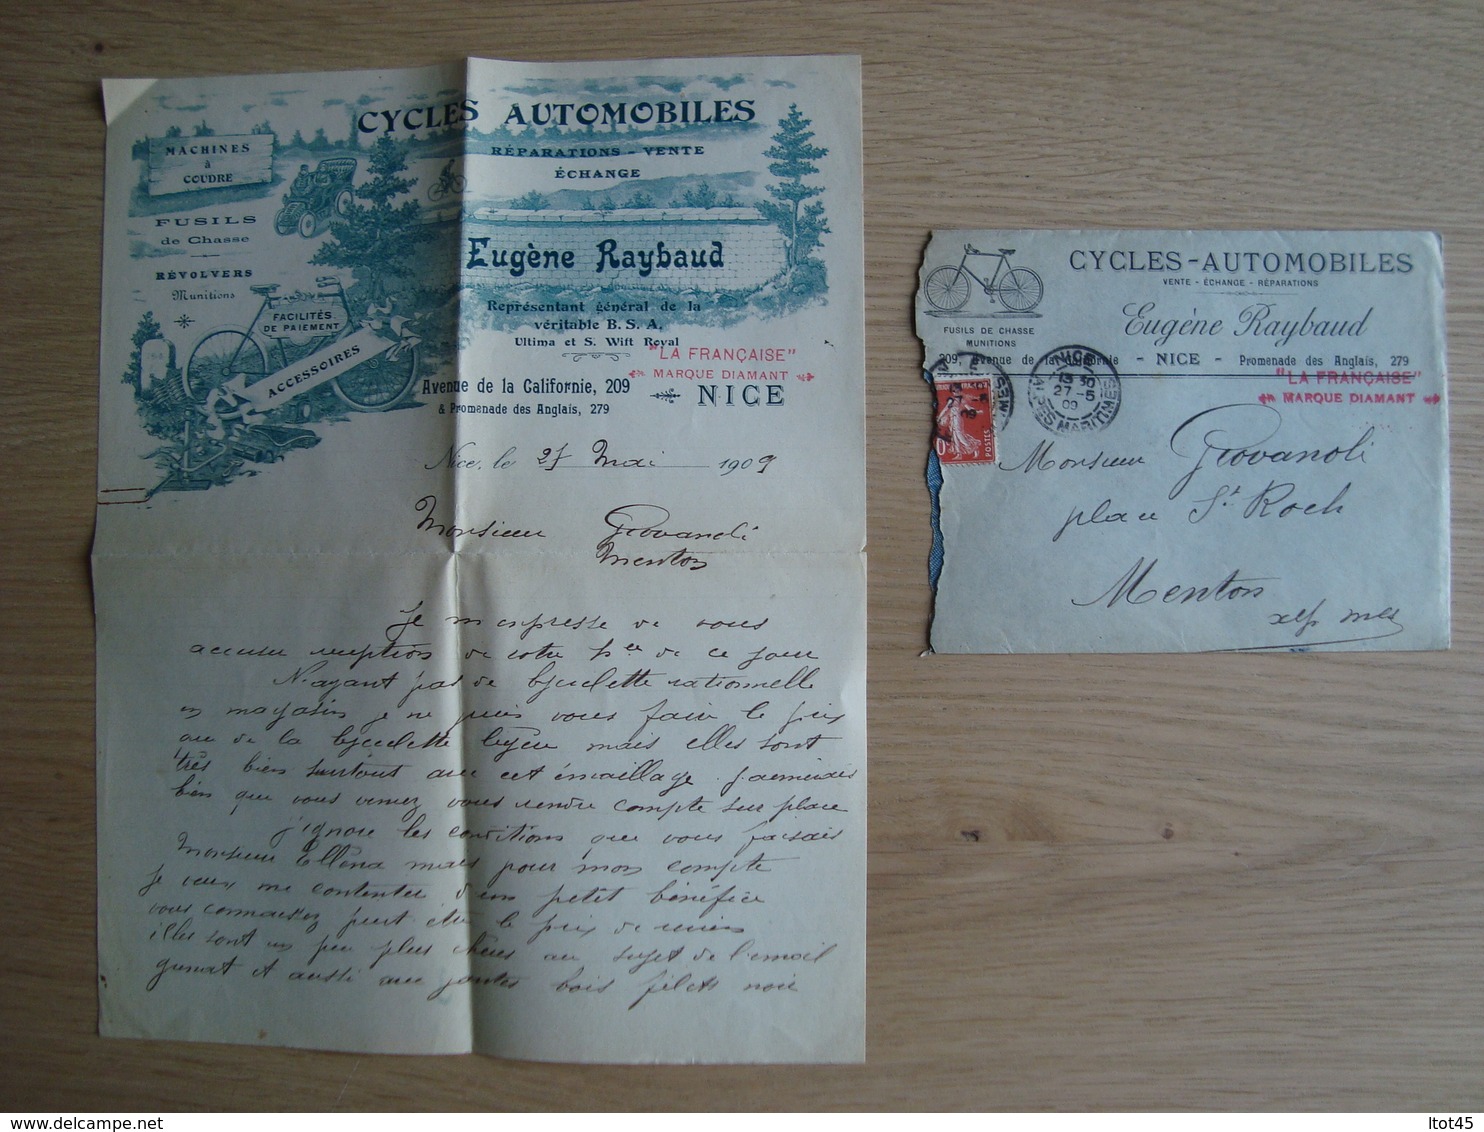 CYCLES AUTOMOBILES
RÉPARATIONS - VENTE
ÉCHANGE
MACHINES
à
COUDRE
FUSILS
de Chasse
RÉVOLVERS
Munitions
FACILITÉS
DE PAIEMENT
ACCESSOIRES
Eugène Raybaud
Représentant général de la
véritable B. S. A.
Ultima et S. Wift Royal
"LA FRANÇAISE"
MARQUE DIAMANT
Avenue de la Californie, 209
& Promenade des Anglais, 279
NICE
Nice, le 27 Mai 1909
Monsieur Giovanoli
Menton
Je m'empresse de vous
accuser reception de votre de ce jour
N'ayant pas de bycielette rationnelle
en magasin je ne puis vous faire le prix
ou de la bycielette mais elles sont
très bien surtout avec cet émaillage
bien que vous veniez vous rendre compte sur place
j'ignore les conditions que vous faisais
Monsieur Ellena mais pour mon compte
je veux me contenter d'un petit bénéfice
vous connaissez peut être le prix de
elles sont un peu plus chères au sujet de l'email
grenat et aussi avec jantes bois filets noir
CYCLES-AUTOMOBILES
VENTE - ÉCHANGE - RÉPARATIONS
Eugène Raybaud
FUSILS DE CHASSE
MUNITIONS
209, Avenue de la Californie - NICE - Promenade des Anglais, 279
"LA FRANÇAISE"
MARQUE DIAMANT
NICE
13 30
27-5
09
ALPES MARITIMES
POSTES
Monsieur Giovanoli
place St Roch
Menton
alp mes
ltot45